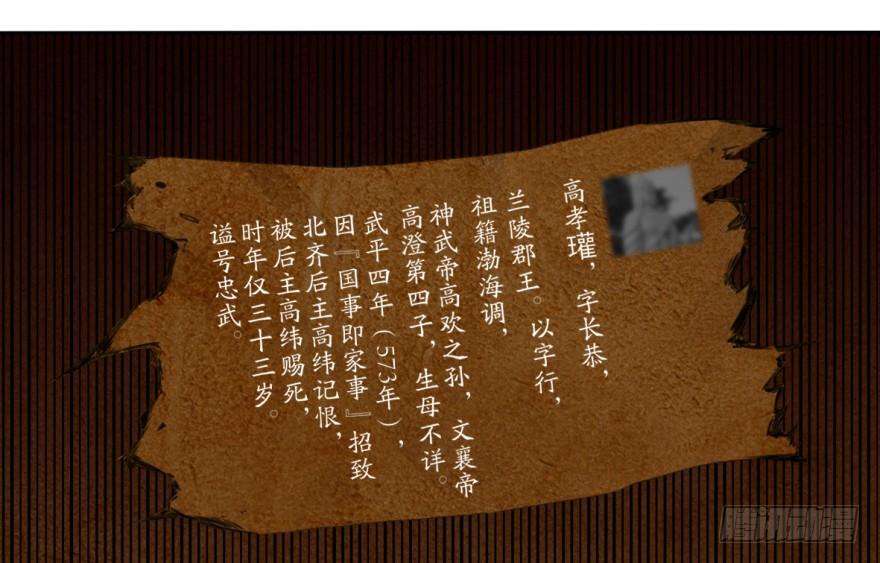 高孝瓘，字长恭，
兰陵郡王。以字行，
祖籍渤海调，
神武帝高欢之孙，文襄帝
高澄第四子，生母不详。
武平四年（573年），
因『国事即家事』招致
北齐后主高纬记恨，
被后主高纬赐死，
时年仅三十三岁。
谥号忠武。
腾讯动漫